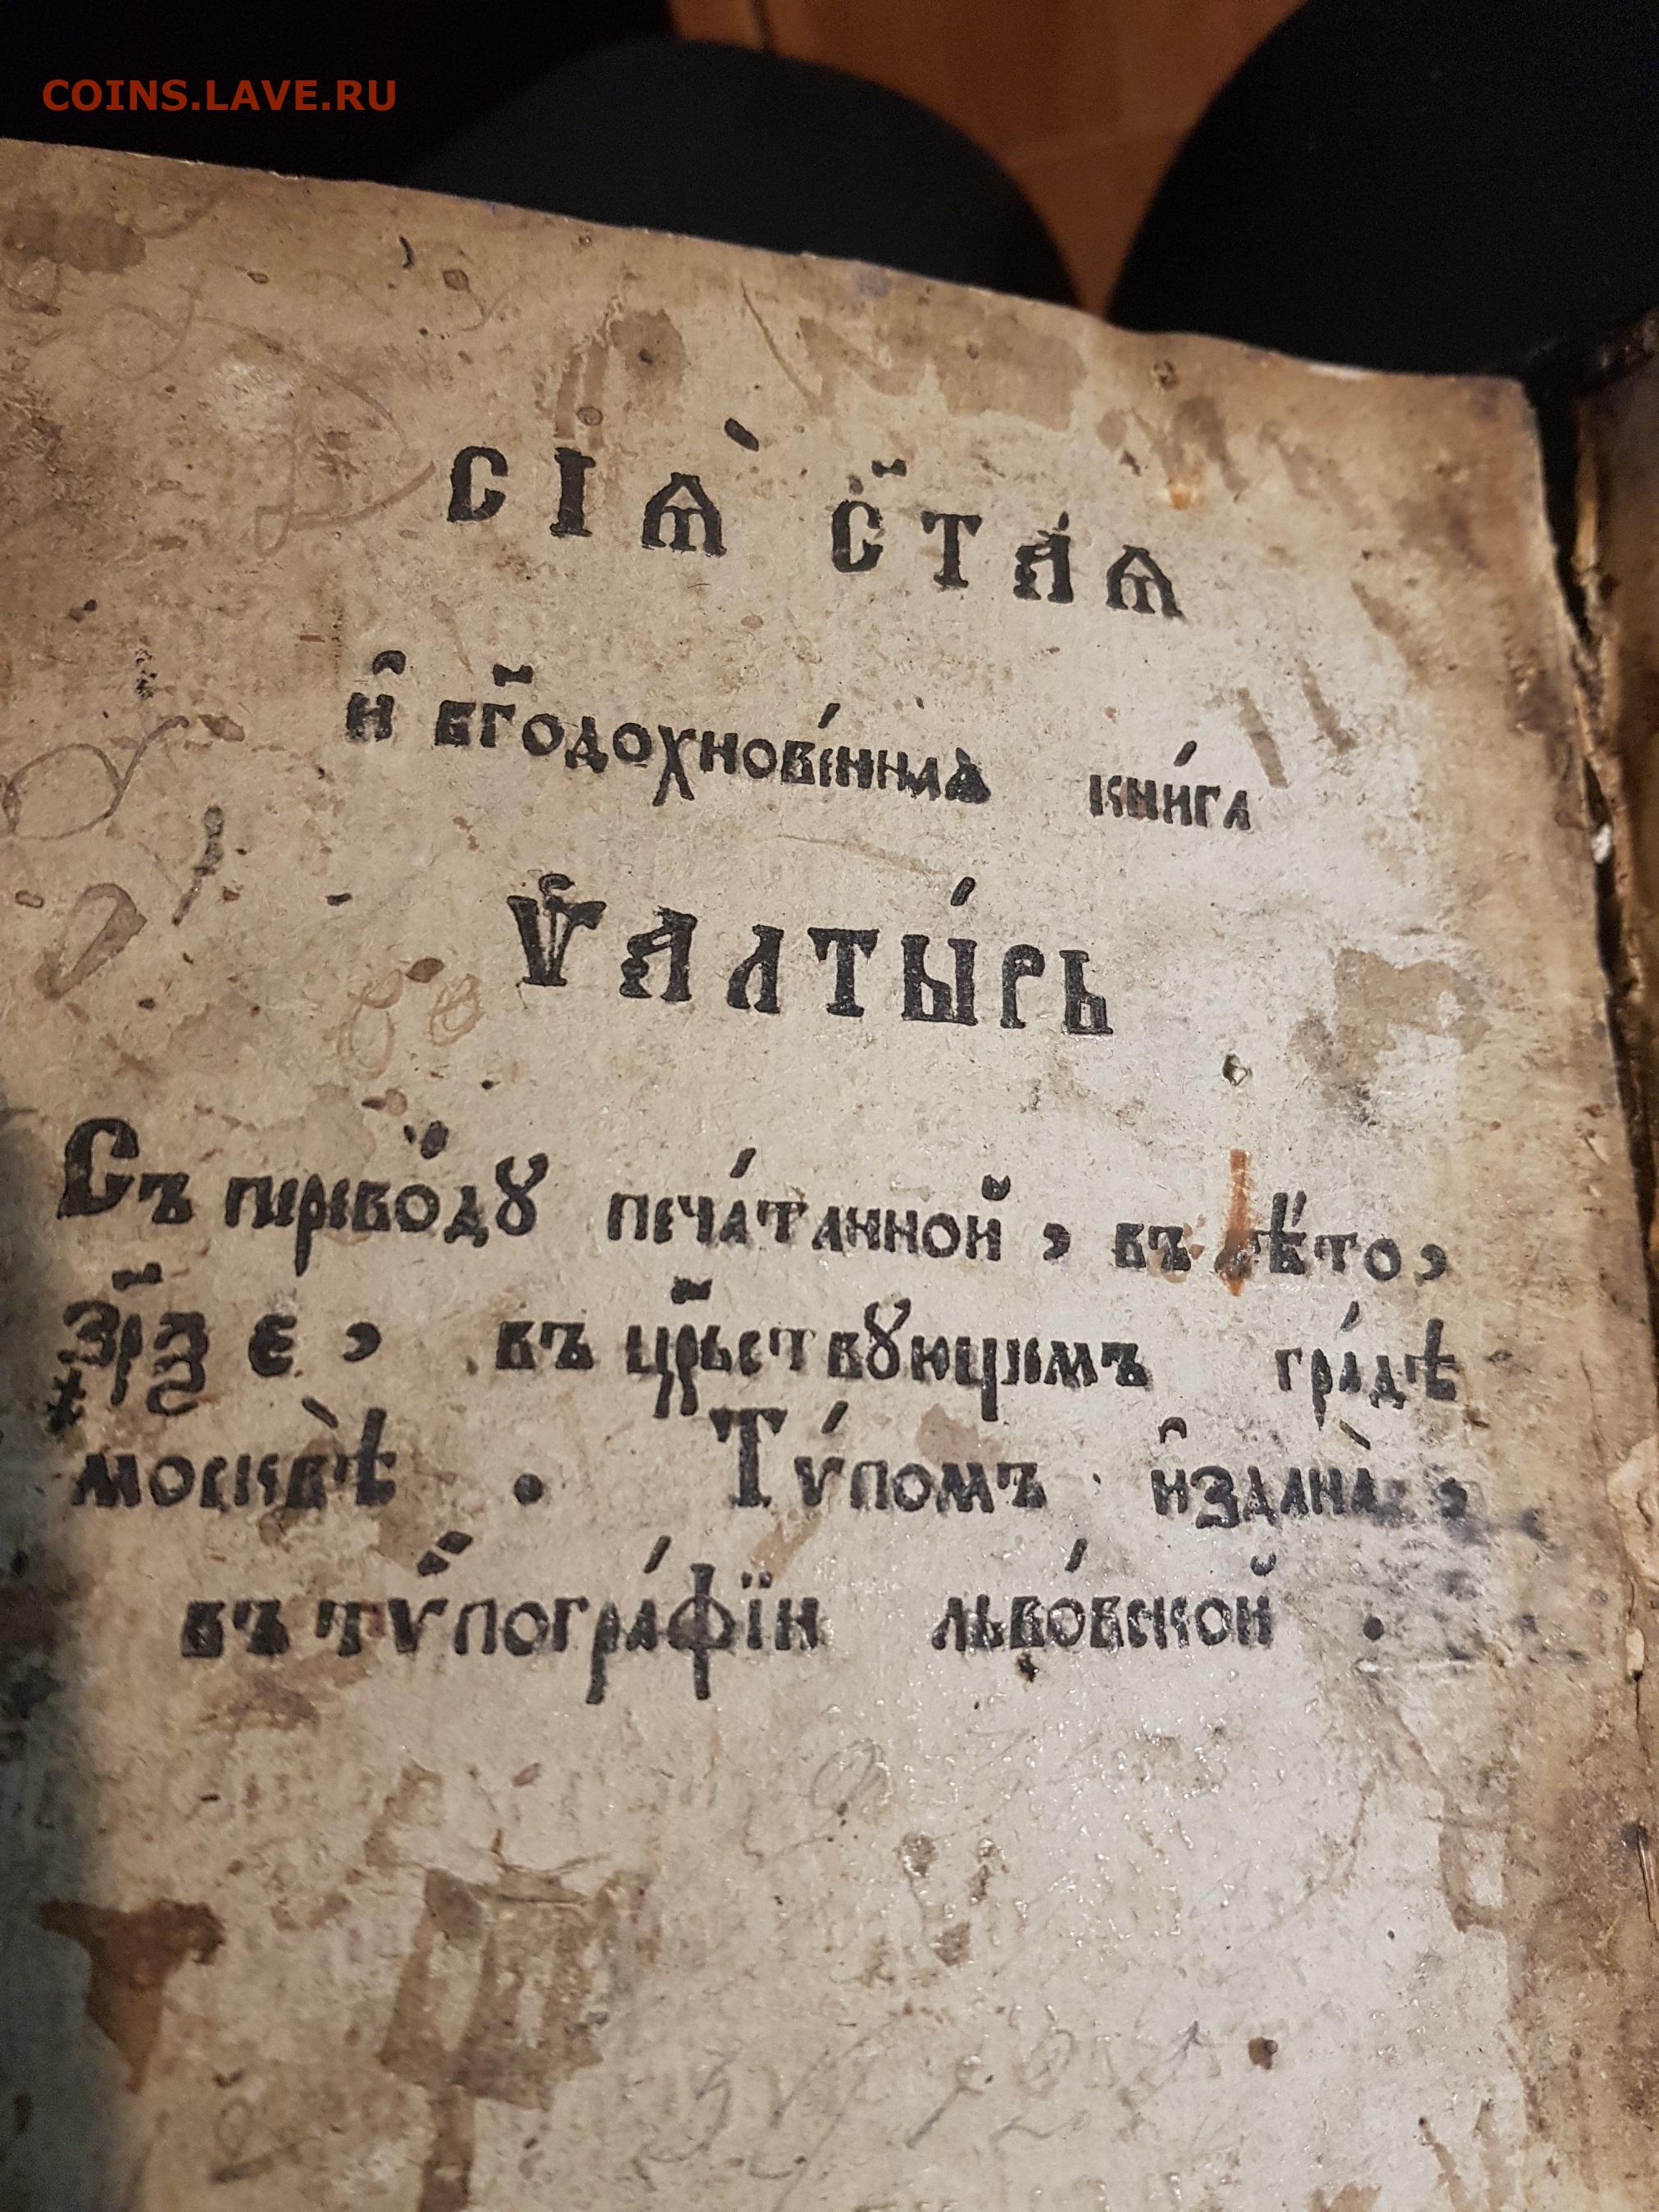 COINS.LAVE.RU
СІѦ̀ С҃ТА́Ѧ
и҆ бг҃одохнове́нная кни́га
Ѱ҆АЛТЫ́РЬ
Съ перево́ду печа́танной, въ лѣ́то,
҂зр҃ѯ є, въ цр҃ьствꙋющемъ гра́дѣ
москвѣ̀ . Тѵ́помъ и҆здана̀,
въ тѵпогра́фїи льво́вской .